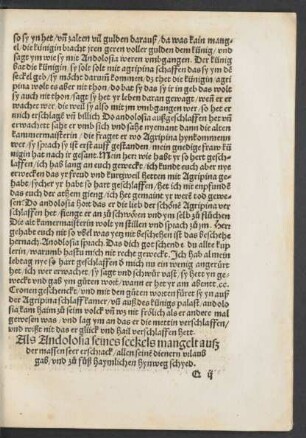 so sy yn het/ vñ zalten vil gulden darauß/ da was kain mang⸗
el. die künigin bracht jren geren voller gulden dem künig/ vnd
sagt ym wie sy mit Andolosia weren vmbgangen. Der künig
bat die künigin/ sy solt solt mit agripina schaffen das sy ym dẽ
seckel geb/ sy möcht darum̃ kommen. dz thet die künigin/ agri
pina wolt es aber nit thon/ do bat sy das sy ir in geb das wolt
sy auch nit thon/ sagt sy het yr leben daran gewagt/ weñ er er
wachet wer/ die weil sy also mit ym vmbgangen wer/ so het er
mich erschlagẽ vñ billich Do andolosia außgeschlaffen het vñ
erwachet sahe er vmb sich vnd sahe nyemant dann die alten
kammermaisterin/ die fraget er wo Agripina hynkommenn
wer/ sy sprach sy ist erst auff gestanden/ mein gnedige fraw kü
nigin hat nach ir gesant. Mein herr wie habt yr so hert gesch⸗
laffen/ ich hab lang an euch geweckt/ ich kunde euch aber nye
erwecken das yr freud vnd kurtzweil hetten mit Agripina ge⸗
habt/ sycher yr habt so hart geschlaffen/ het ich nit empfunde
das euch der athem gieng/ ich het gemaint yr werẽ tod gewe⸗
sen? Do andolosia hort das er die lieb der schönẽ Agripina ver
schlaffen het. fienge er an zů schwörẽn vnd ym selb zů fluchen
Die alt kammaisterin wolt yn stillen vnd sprach zů ym. Herr
gehabt euch nit so vbel was yetz nit beschehen ist das beschehe
hernach Andolosia sprach. Das dich got schende du alte kup
lerin/ warumb hastu mich nit recht geweckt. Ich hab al mein
lebtag nye so hart geschlaffen õ mich nu ein wenig angerürt
het/ ich wer erwachet/ sy sagt vnd schwůr vast/ sy hett yn ge⸗
weckt vnd gab ym gůten wort/ wann er het yr am abent .cc.
Cronen geschenckt/ vnd mit den gůten worten fůret sy yn auß
der Agripina schlaff kamer/ vñ auß des künigs palast. andolo
sia kam haim zů seim volck vñ wz nit frölich als er ander mal
gewesen was/ vnd lag ym an das er die mettin verschlaffen/
vnd weißt nit das er glück vnd hail verschlaffen hett.
Als Andolosia seines seckels mangelt auß
der massen seer erschrack/ allen seinẽ dienern vrlaub
gab/ vnd zů fůß haymlichen hynweg schyed.
Q ij